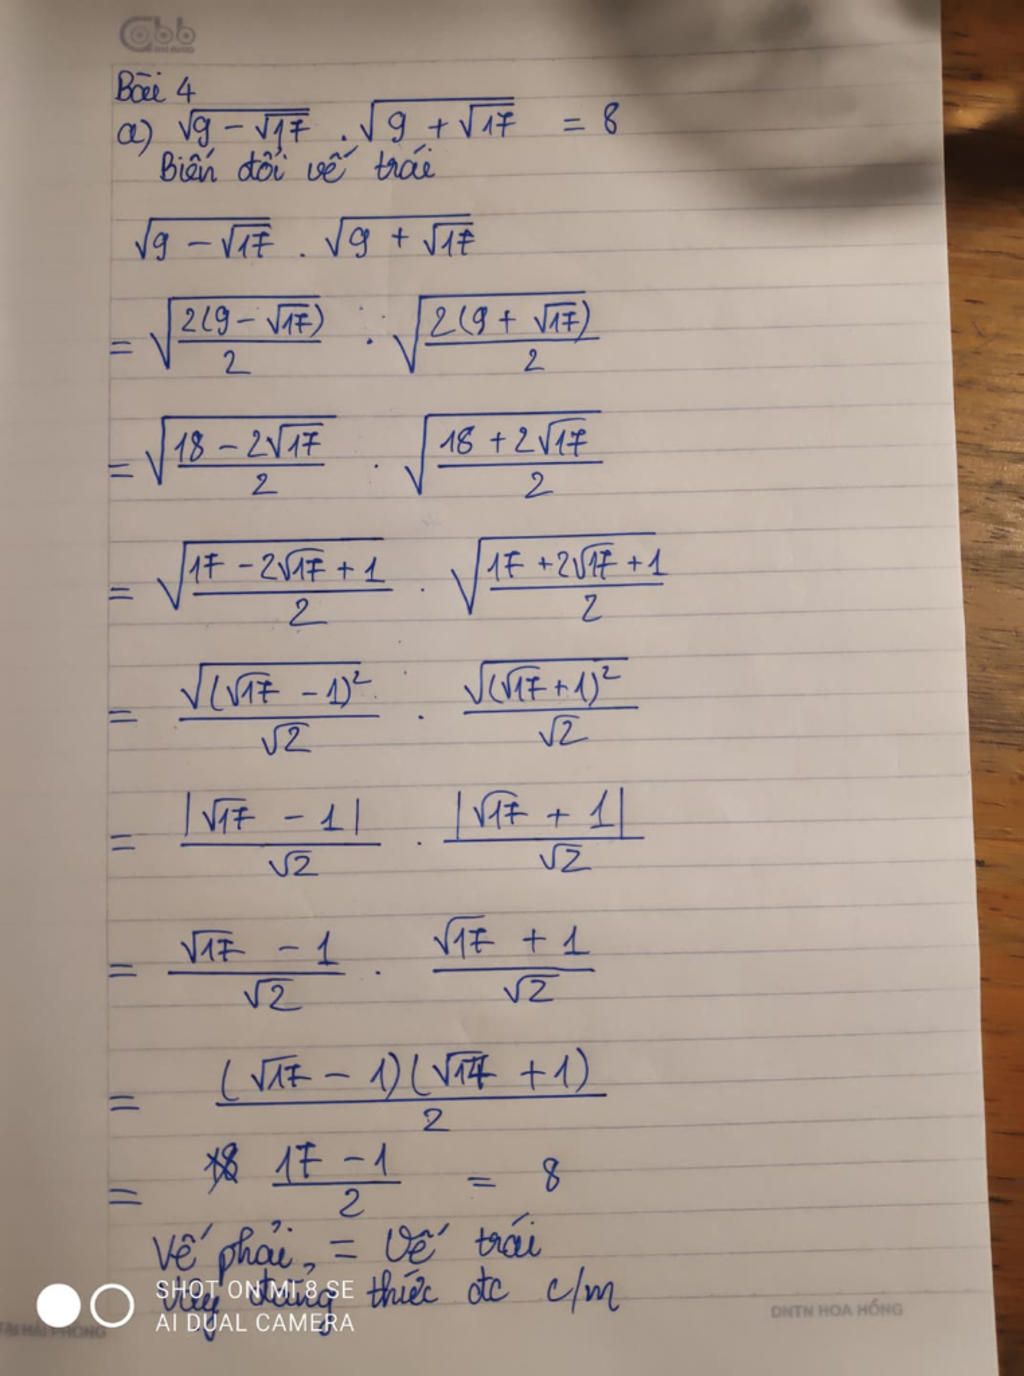 abb
Bài 4
a) √(9 - √17) . √(9 + √17) = 8
Biến đổi vế trái
√(9 - √17) . √(9 + √17)
= √(2(9 - √17)/2) . √(2(9 + √17)/2)
= √((18 - 2√17)/2) . √((18 + 2√17)/2)
= √((17 - 2√17 + 1)/2) . √((17 + 2√17 + 1)/2)
= √((√17 - 1)²)/√2 . √((√17 + 1)²)/√2
= |√17 - 1|/√2 . |√17 + 1|/√2
= (√17 - 1)/√2 . (√17 + 1)/√2
= (√17 - 1)(√17 + 1)/2
= (17 - 1)/2 = 8
Vế phải = Vế trái
Vậy đẳng thức đc c/m
SHOT ON MI 8 SE
AI DUAL CAMERA
DNTN HOA HỒNG
TẠI HẢI PHÒNG